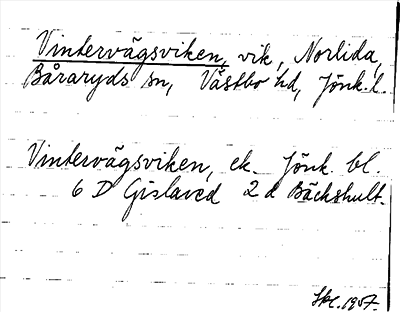 Vintervägsviken, vik, Norlida,
Båraryds sn, Västbo hd, Jönk. l.
Vintervägsviken, ek. Jönk. bl.
6 D Gislaved 2 d Bäckshult.
1957.